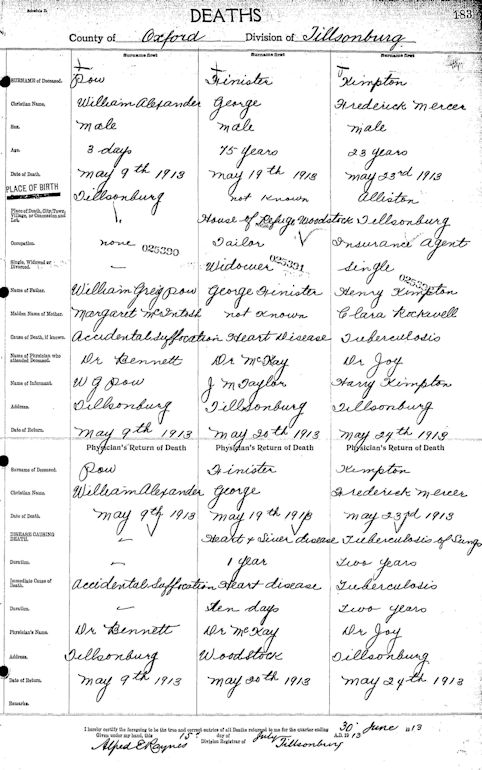 Schedule D.
DEATHS
183
County of Oxford Division of Tillsonburg
Surname first Surname first Surname first
SURNAME of Deceased. Pow Finister Kimpton
Christian Name, William Alexander George Frederick Mercer
Sex. male male male
Age. 3 days 75 years 23 years
Date of Death. May 9th 1913 May 19th 1913 May 23rd 1913
PLACE OF BIRTH Tillsonburg not known Alliston
Place of Death, City, Town, Village, or Concession and Lot. House of Refuge Woodstock Tillsonburg
Occupation. none 025390 Tailor Insurance Agent
Single, Widowed or Divorced. — Widower 025391 Single
Name of Father. William Grey Pow George Finister Henry Kimpton
Maiden Name of Mother. Margaret McIntosh not known Clara Rockwell
Cause of Death, if known. Accidental Suffocation Heart Disease Tuberculosis
Name of Physician who attended Deceased. Dr Bennett Dr McKay Dr Joy
Name of Informant. W G Pow J M Taylor Harry Kimpton
Address. Tillsonburg Tillsonburg Tillsonburg
Date of Return. May 9th 1913 May 20th 1913 May 24th 1913
Physician's Return of Death Physician's Return of Death Physician's Return of Death
Surname of Deceased. Pow Finister Kimpton
Christian Name, William Alexander George Frederick Mercer
Date of Death. May 9th 1913 May 19th 1913 May 23rd 1913
DISEASE CAUSING DEATH. — Heart & Liver disease Tuberculosis of Lungs
Duration. — 1 year Two years
Immediate Cause of Death. Accidental Suffocation Heart disease Tuberculosis
Duration. — Ten days Two years
Physician's Name. Dr Bennett Dr McKay Dr Joy
Address. Tillsonburg Woodstock Tillsonburg
Date of Return. May 9th 1913 May 20th 1913 May 24th 1913
Remarks.
I hereby certify the foregoing to be the true and correct entries of all Deaths returned to me for the quarter ending 30 June 1913
Given under my hand, this 15th day of July A.D. 1913
Alfred E Raynes Division Registrar of Tillsonburg